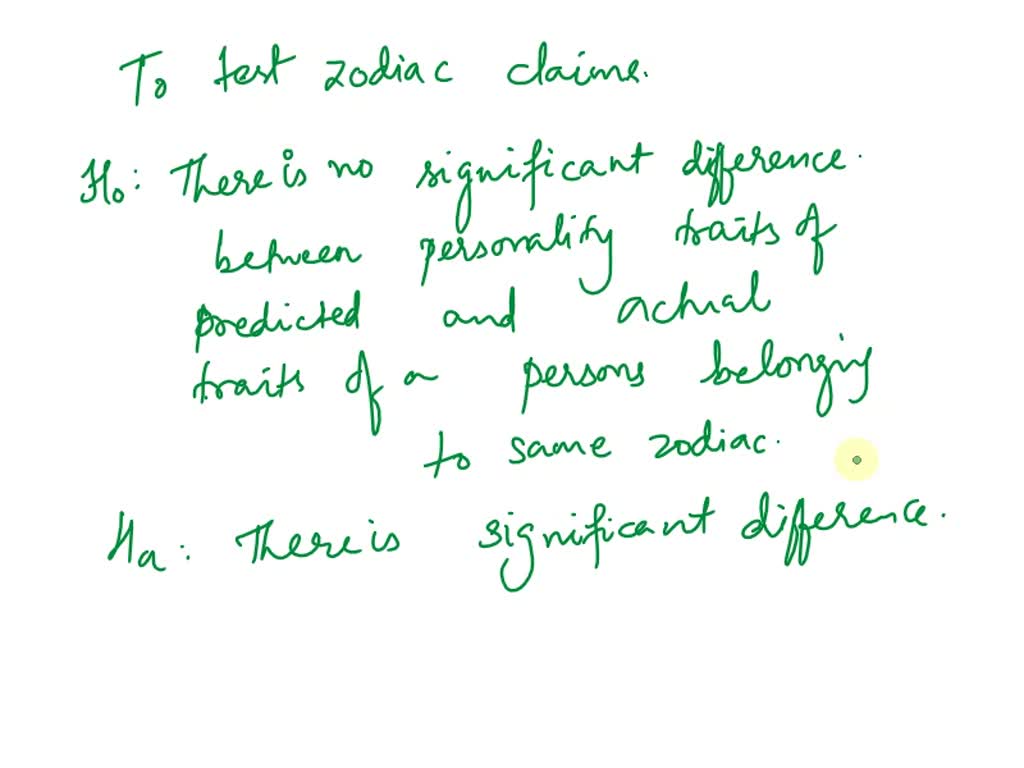 To test zodiac claims.
H0: There is no significant difference.
between personality traits of
predicted and actual
traits of a persons belonging
to same zodiac.
Ha: There is significant difference.